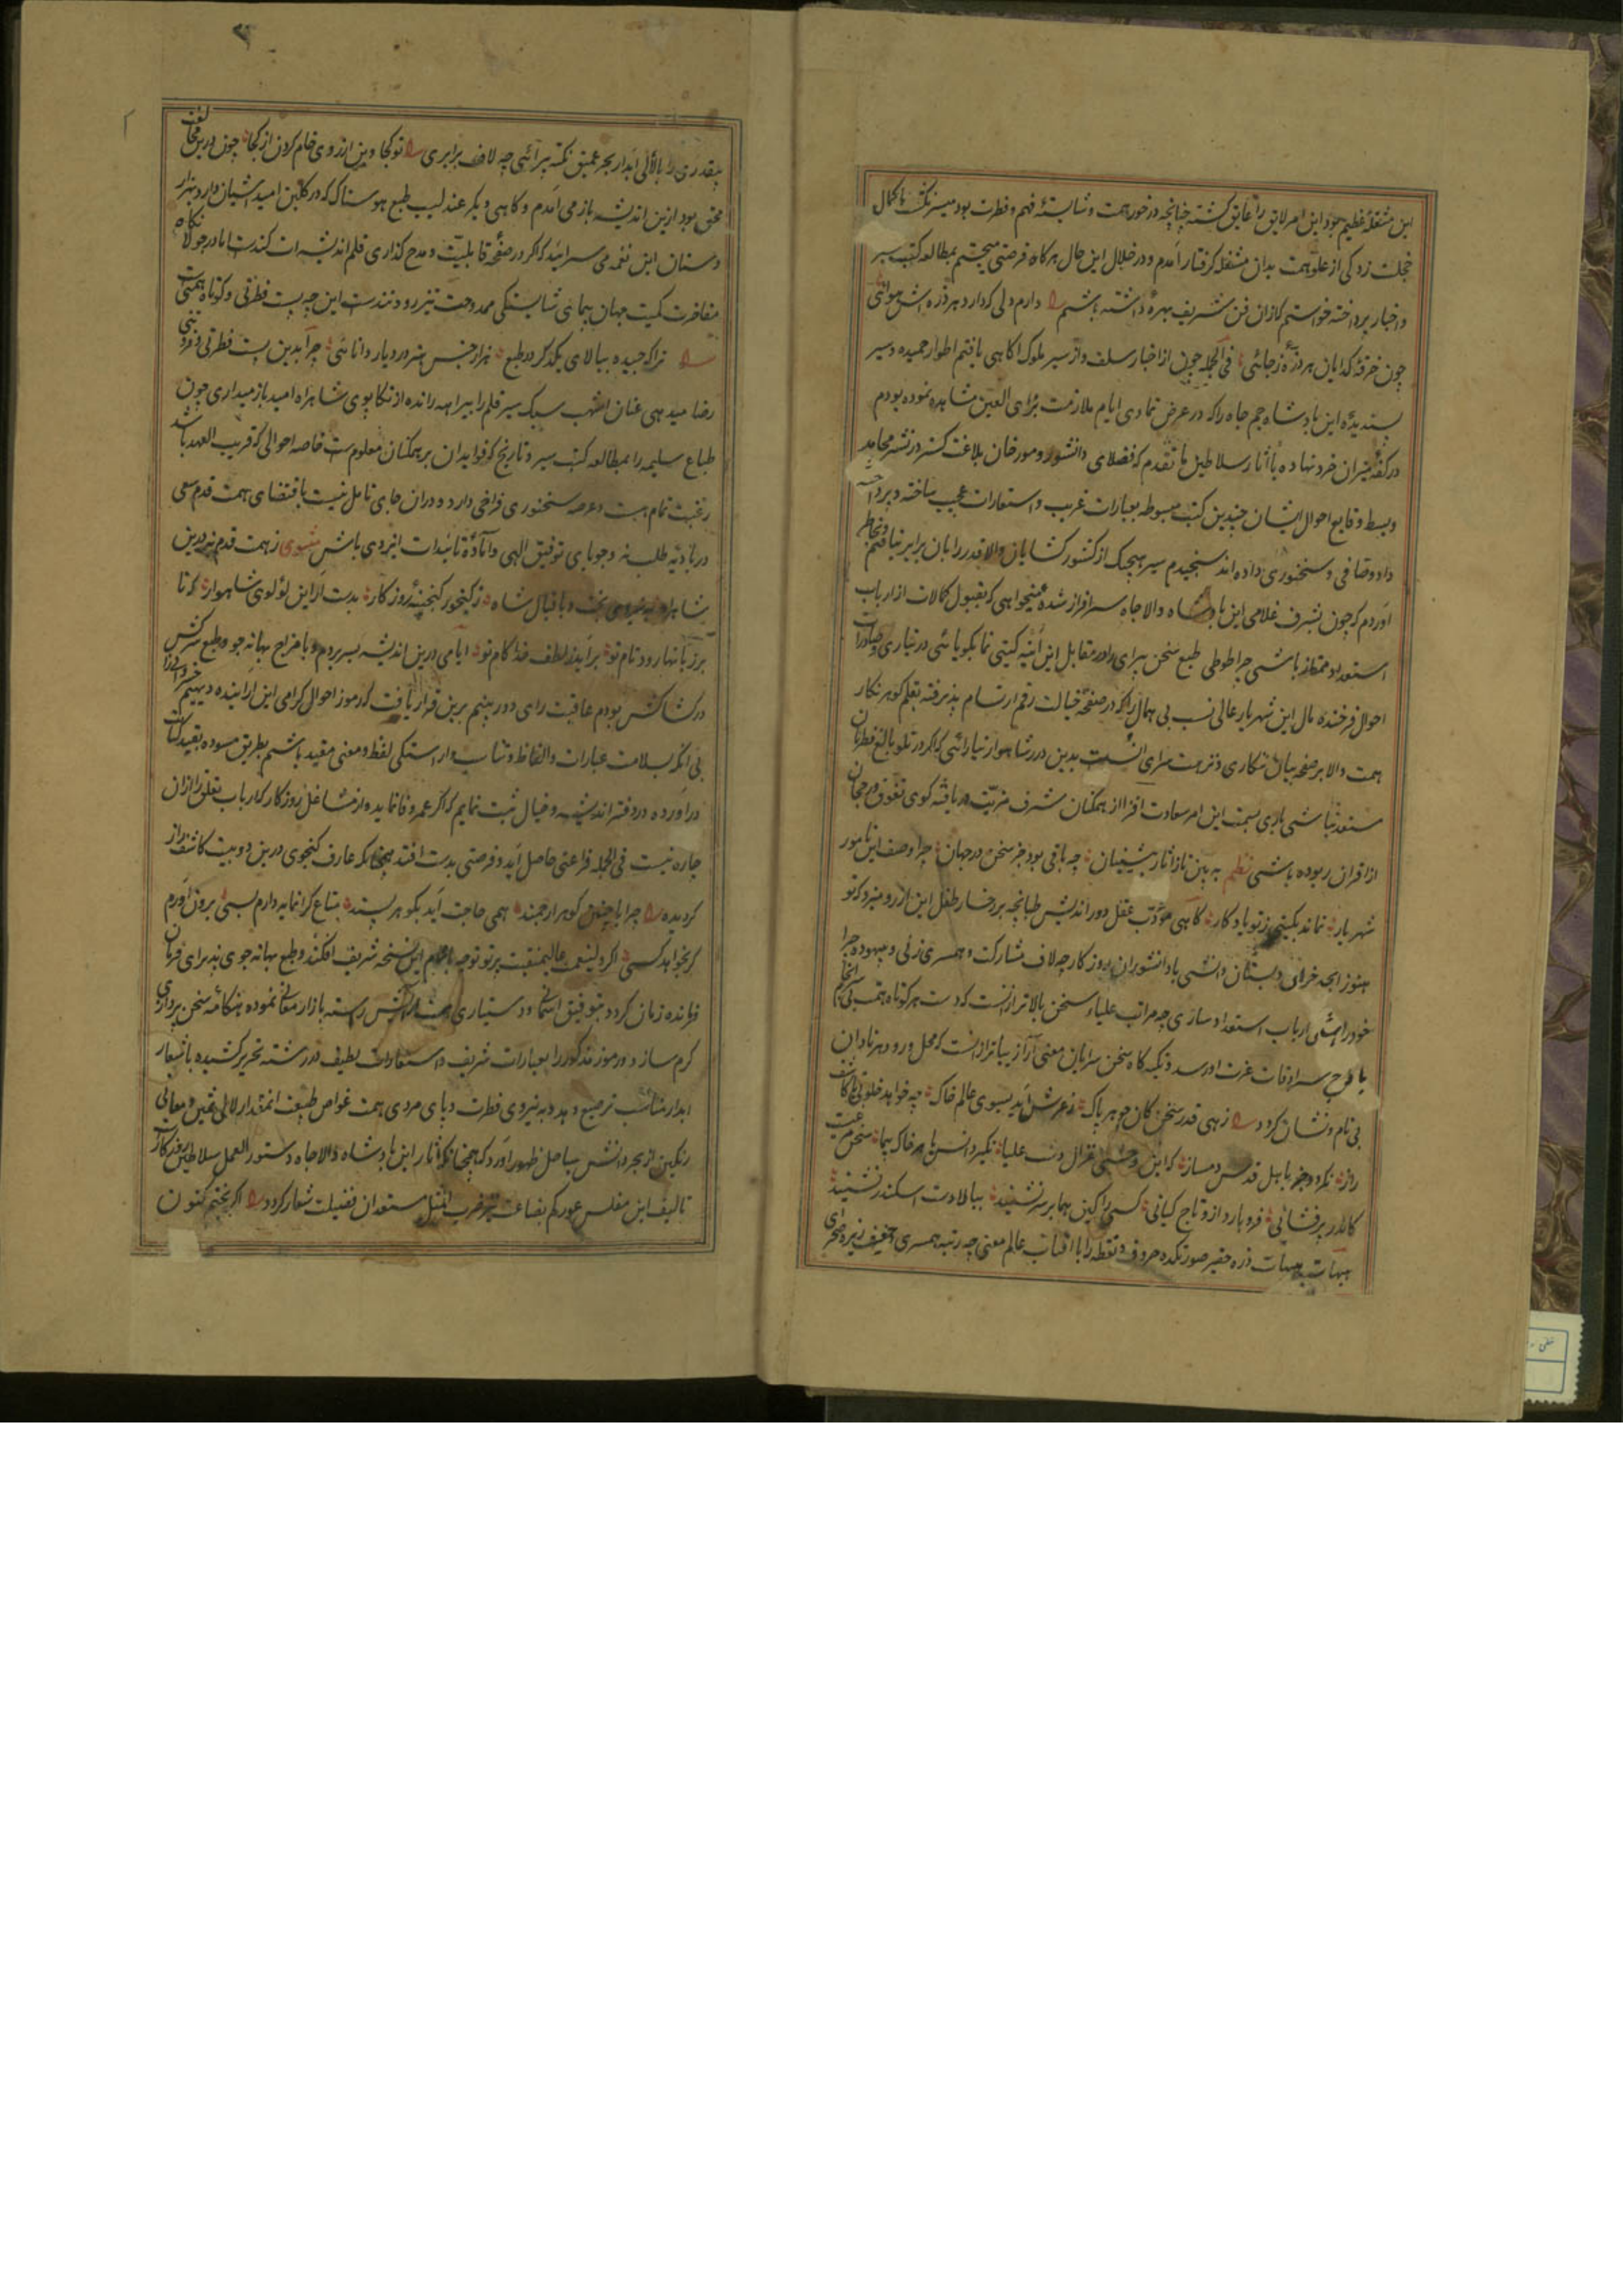 این مشغلهٔ عظیم بود این امر لایق را عایق گشته چنانچه در خور همت و شایستهٔ فهم و فطرت بود میسر نگشت با کمال
خجلت زدگی از علو همت بدان مشغله گرفتار آمدم و در خلال این حال هر گاه فرصتی میجستم بمطالعه کتب سیر
و اخبار پرداخته خواستم کزان فن شریف بهرهٔ داشته باشم دارم دلی که دارد هر ذره اش هوائی
چون خرقهٔ گدایان هر ذرهٔ ز جائی فی الجمله چون از اخبار سلف و از سیر ملوک آگاهی یافتم اطوار حمیده و سیر
پسندیدهٔ این پادشاه جم جاه را که در عرض تمادی ایام ملازمت برای العین مشاهده نموده بودم
در کفهٔ میزان خرد نهاده با آثار سلاطین ما تقدم که فضلای دانشور و مورخان بلاغت گستر در نشر محامد
و بسط وقایع احوال ایشان چندین کتب مبسوطه بعبارات غریب و استعارات عجیب ساخته و پرداخته
داد وصافی و سخنوری داده اند سنجیدم سیر هیچیک از کشور گشایان والا قدر را بان برابر نیافتم و بخاطر
آوردم که چون بشرف غلامی این پادشاه والا جاه سرافراز شده میخواهی که بقبول کمالات از ارباب
استعداد ممتاز باشی چرا طوطی طبع سخن سرای را در مقابل این آینه گیتی نما بگویائی در نیاری و
احوال فرخنده مال این شهریار عالی نسب بی همال را که در صفحهٔ خیالت رقم ارتسام پذیرفته بقلم گوهر نگار
همت والا بر صفحه بیان نگاری و نزهت سرای بدین درر شاهوار نیارائی که اگر در تلو بالغ فطرتان
مستعد نباشی باری بسمت این امر سعادت افزا از همگنان شرف مزیت دریافته گوی تفوق و رجحان
از اقران ربوده باشی نظم به بین تا ز آثار پیشینیان چه باقی بود جز سخن در جهان چرا وصف این نامور
شهریار نماند بگیتی ز تو یادگار گاهی مؤدب عقل دور اندیش طپانچه بر رخسار طفل این آرزو میزد که تو
هنوز ابجد خوان دبستان دانشی با دانشوران روزگار چه لاف مشارکت و همسری زنی و بیهوده چرا
خود را ارباب استعداد سازی چه مراتب علیاء سخن بالاتر از آنست که دست هر کوتاه همت بی سرانجام
با وج سرادقات عزت او رسد و تکیه گاه سخن سرایان معنی آرا زیباتر از آنست که محل ورود هر نادان
بی نام و نشان گردد زهی قدر سخن کان جوهر پاک ز عرش آید بسوی عالم خاک چه خواهد خلوتی
راز نگردد جز با اهل قدس دمساز که این وحشی غزال دشت علیا نگیرد انس با هر خاک پیما سخن
کاندر بر فشانی فرو بارد از و تاج کیانی کسی را کین هما بر سر نشیند ببالا دست اسکندر نشیند
هیهات هیهات ذره حقیر صورتکده حروف و نقطه را با آفتاب عالم معنی چه رتبه همسری
بیقدری را بالآلی آبدار بحر عمیق نکته پیرائی چه لاف برابری تو کجا وین آرزوی خام کردن از کجا چون درین
محق بود ازین اندیشه باز می آمدم و گاهی دیگر عندلیب طبع هوسناک که در گلبن امید آشیان دارد و هزار
دستان این نغمه می سراید که اگر در صفحه قابلیت و مدح گذاری قلم اندیشه ات کندست اما در جولانگاه
مفاخرت کمیت جهان پیمای شایستگی ممدوحت تیز رو و تندست این چه پست فطرتی و کوتاه همتی
ترا که جیده ببالای یکدگر در طبع هزار جنس هنر در دیار دانائی چرا بدین پست فطرتی و
رضا میدهی عنان اشهب سبک سیر قلم را بیراهه رانده از تکاپوی شاهراه امید باز میداری چون
طباع سلیمه را بمطالعه کتب سیر و تاریخ که فواید ان بر همگنان معلوم ست خاصه احوالی که قریب العهد باشد
رغبت تمام هست و عرصه سخنوری فراخی دارد و دران جای تامل نیست باقتضای همت قدم سعی
در بادیه طلب نه و جویای توفیق الهی و آمادهٔ تائیدات ایزدی باش مثنوی ز همت قدم نه درین
شاهراه به نیروی بخت و باقبال شاه ز گنجور گنجینهٔ روزگار بدست آر این لؤلوی شاهوار که تا
بر زبانها رود نام تو برآید ز لطف خدا کام تو ایامی درین اندیشه بسر بردم و با مزاج بهانه جو و طبع سرکش
در کشاکش بودم عاقبت رای دور بینم برین قرار یافت که رموز احوال گرامی این آراینده دیهیم
بی آنکه بسلاست عبارات و الفاظ و تناسب و آراستگی لفظ و معنی مقید باشم بطریق مسوده بقید کتابت
در آورده در دفتر اندیشه و خیال ثبت نمایم که اگر عمر وفا نماید و از مشاغل روزگار که ارباب تعلق را از ان
چاره نیست فی الجمله فراغتی حاصل آید و فرصتی بدست افتد چنانکه عارف گنجوی درین دو بیت کاشف راز
گردیده چرا با چنین گوهر ارجمند همی حاجت آید بگوهر پسند متاع گرانمایه دارم بسی برون آورم
گر بخواهد کسی اگر ولینعمت عالیمنقبت پرتو توجه باتمام این نسخه شریف افکند و طبع بهانه جوی پذیرای فرمان
فرمانده زمان گردد بتوفیق آسمانی و دستیاری همت رسته بازار معانی نموده هنگامه سخن پردازی
گرم سازد و رموز مذکور را بعبارات شریف و استعارات لطیف در رشته تحریر کشیده باشعار
آبدار مناسب ترصیع دهد و به نیروی فطرت و پای مردی همت غواص طبیعت آنمقدار لآلی ثمین و معانی
رنگین از بحر دانش بساحل ظهور آورد که همچنانکه آثار این پادشاه والا جاه دستور العمل سلاطین روزگار
تالیف این مفلس عور کم بضاعت نیز ضرب المثل مستعدان فضیلت شعار گردد اگر بختم کنون